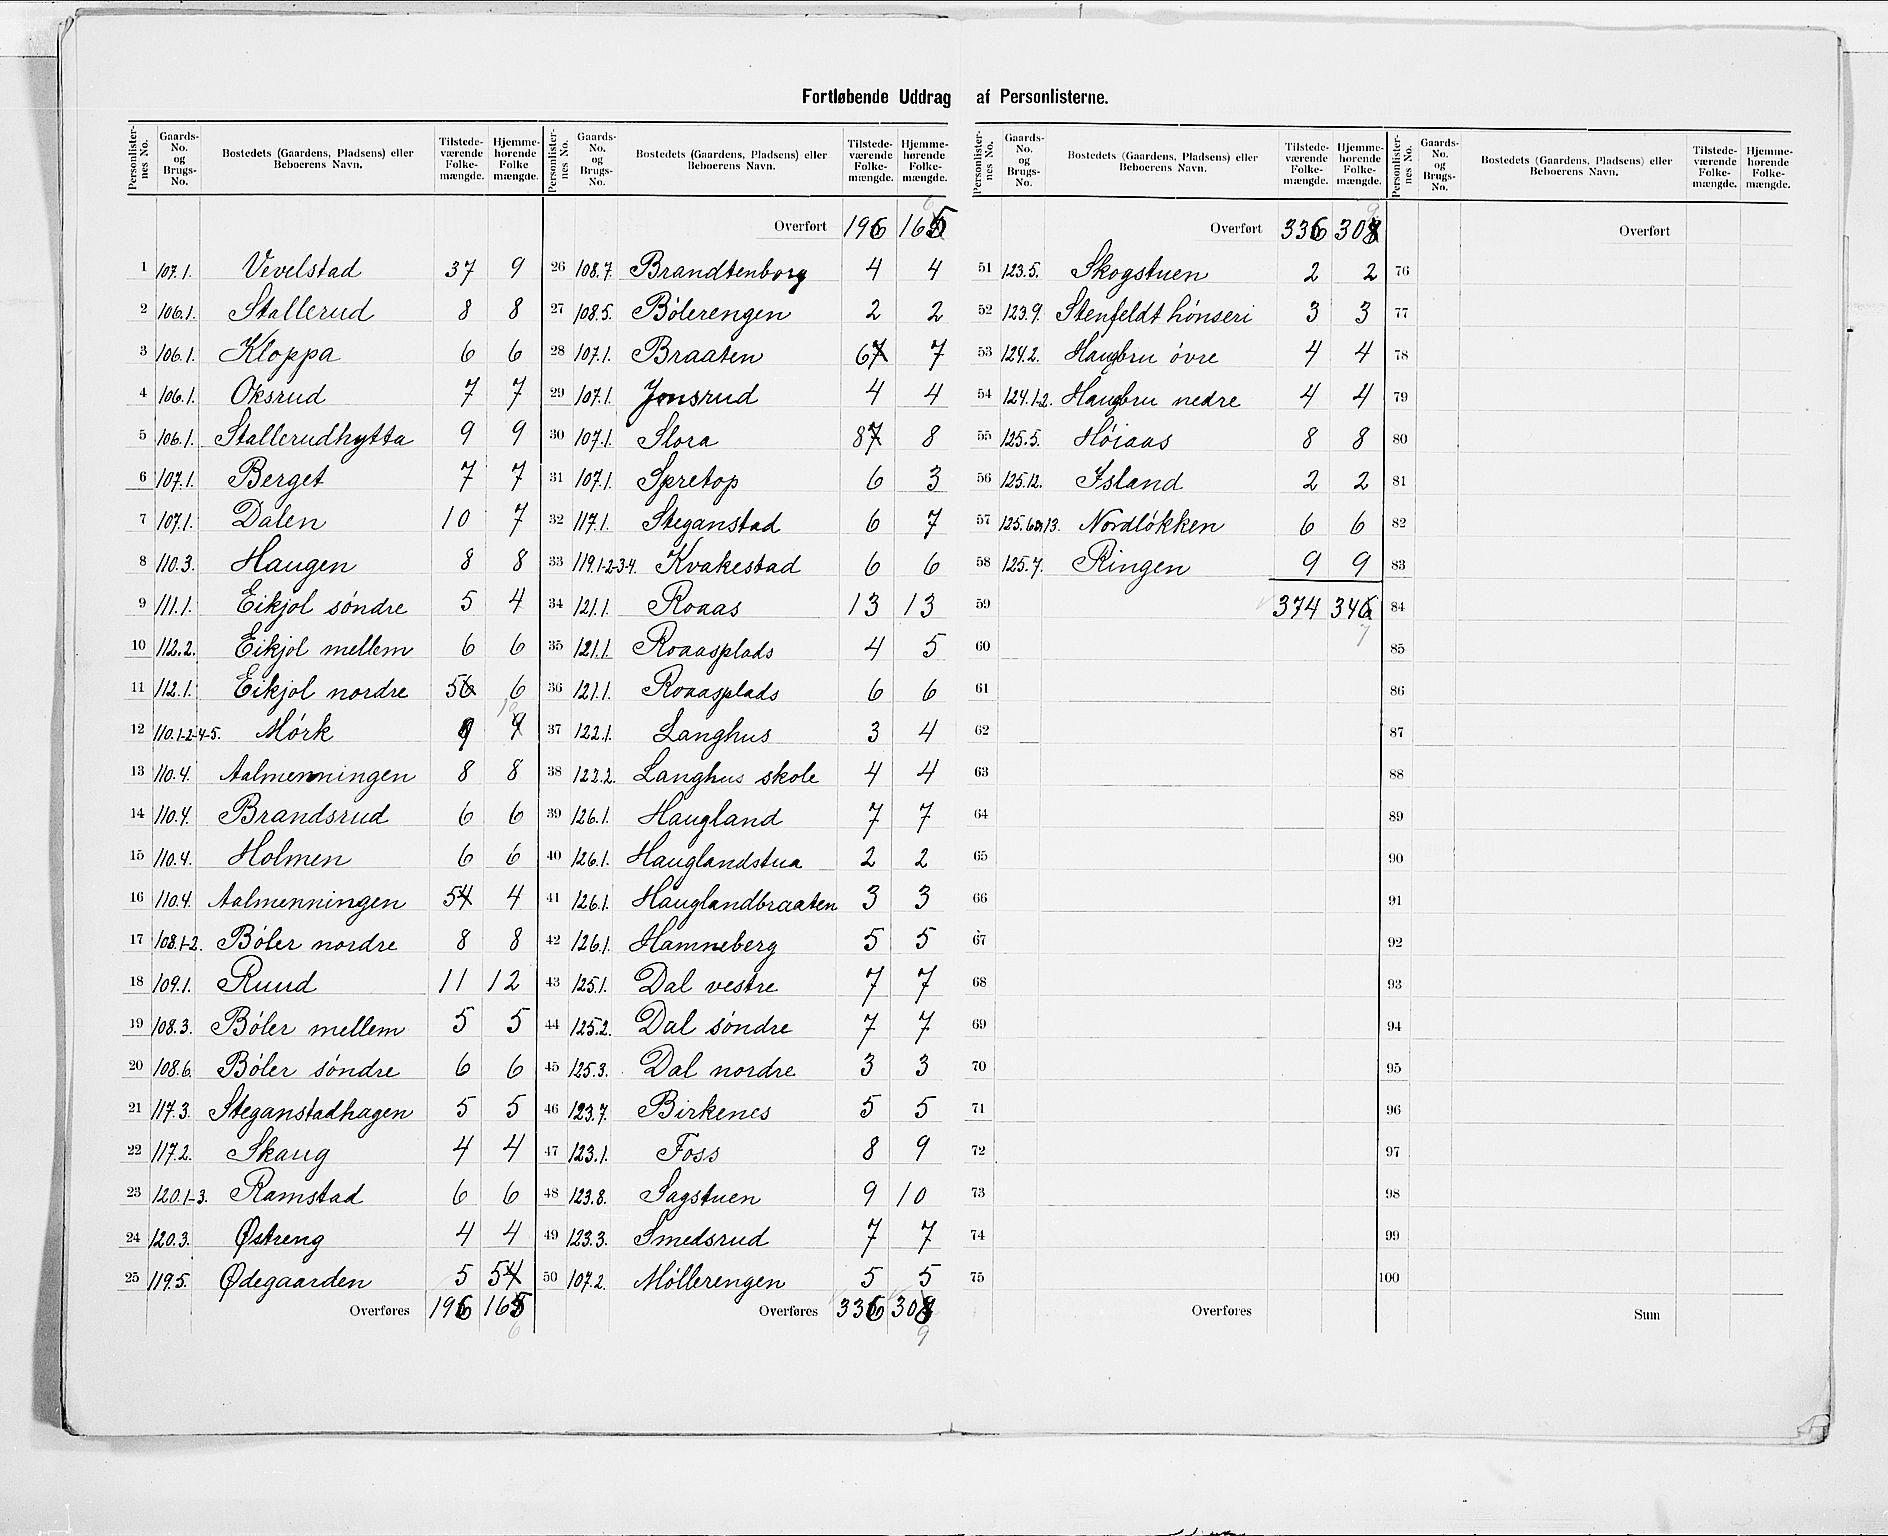 Fortløbende Uddrag af Personlisterne.
Personlister-nes No. Gaards-No. og Brugs-No. Bostedets (Gaardens, Pladsens) eller Beboerens Navn. Tilstede-værende Folke-mængde. Hjemme-hørende Folke mængde.
1 107.1. Vevelstad 37 9
2 106.1. Stallerud 8 8
3 106.1. Kloppa 6 6
4 106.1. Oksrud 7 7
5 106.1. Stallerudhytta 9 9
6 107.1. Berget 7 7
7 107.1. Dalen 10 7
8 110.3. Haugen 8 8
9 111.1. Eikjol søndre 5 4
10 112.2. Eikjol mellem 6 6
11 112.1. Eikjol nordre 56 6
12 110.1-2-4-5. Mørk 9 9 10
13 110.4. Aalmenningen 8 8
14 110.4. Brandsrud 6 6
15 110.4. Holmen 6 6
16 110.4. Aalmenningen 54 4
17 108.1-2. Bøler nordre 8 8
18 109.1. Ruud 11 12
19 108.3. Bøler mellem 5 5
20 108.6. Bøler søndre 6 6
21 117.3. Steganstadhagen 5 5
22 117.2. Skaug 4 4
23 120.1-3. Ramstad 6 6
24 120.3. Østreng 4 4
25 119.5. Ødegaarden 5 54
Overføres 196 165
6
Personlister-nes No. Gaards-No. og Brugs-No. Bostedets (Gaardens, Pladsens) eller Beboerens Navn. Tilstede-værende Folke-mængde. Hjemme-hørende Folke-mængde.
6
Overført 196 165
26 108.7. Brandtenborg 4 4
27 108.5. Bølerengen 2 2
28 107.1. Braaten 67 7
29 107.1. Jonsrud 4 4
30 107.1. Slora 87 8
31 107.1. Spretop 6 3
32 117.1. Steganstad 6 7
33 119.1-2-3-4. Kvakestad 6 6
34 121.1. Roaas 13 13
35 121.1. Roaasplads 4 5
36 121.1. Roaasplads 6 6
37 122.1. Langhus 3 4
38 122.2. Langhus skole 4 4
39 126.1. Haugland 7 7
40 126.1. Hauglandstua 2 2
41 126.1. Hauglandbraaten 3 3
42 126.1. Hamneberg 5 5
43 125.1. Dal vestre 7 7
44 125.2. Dal søndre 7 7
45 125.3. Dal nordre 3 3
46 123.7. Birkenes 5 5
47 123.1. Foss 8 9
48 123.8. Sagstuen 9 10
49 123.3. Smedsrud 7 7
50 107.2. Møllerengen 5 5
Overføres 336 308
9
Personlister-nes No. Gaards-No. og Brugs-No. Bostedets (Gaardens, Pladsens) eller Beboerens Navn. Tilstede-værende Folke-mængde. Hjemme-hørende Folke-mængde.
9
Overført 336 308
51 123.5. Skogstuen 2 2
52 123.9. Stenfeldt hønseri 3 3
53 124.2. Haugbru øvre 4 4
54 124.1-2. Haugbru nedre 4 4
55 125.5. Høiaas 8 8
56 125.12. Island 2 2
57 125.6 13. Nordløkken 6 6
58 125.7. Ringen 9 9
59 374 346
7
60
61
62
63
64
65
66
67
68
69
70
71
72
73
74
75
Overføres
Personlister-nes No. Gaards-No. og Brugs-No. Bostedets (Gaardens, Pladsens) eller Beboerens Navn. Tilstede-værende Folke-mængde. Hjemme-hørende Folke-mængde.
Overført
76
77
78
79
80
81
82
83
84
85
86
87
88
89
90
91
92
93
94
95
96
97
98
99
100
Sum